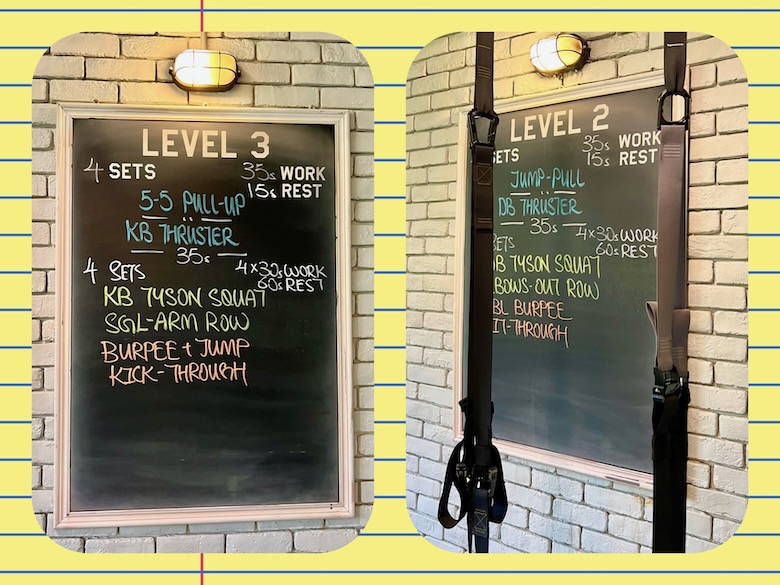 LEVEL 3
4 SETS 35s WORK
15s REST
5-5 PULL-UP
KB THRUSTER
35s
4 SETS 4x30s WORK
60s REST
KB TYSON SQUAT
SGL-ARM ROW
BURPEE + JUMP
KICK-THROUGH
LEVEL 2
SETS 35s WORK
15s REST
JUMP-PULL
DB THRUSTER
35s
SETS 4x30s WORK
60s REST
TYSON SQUAT
BOWS-OUT ROW
BL BURPEE
IT-THROUGH